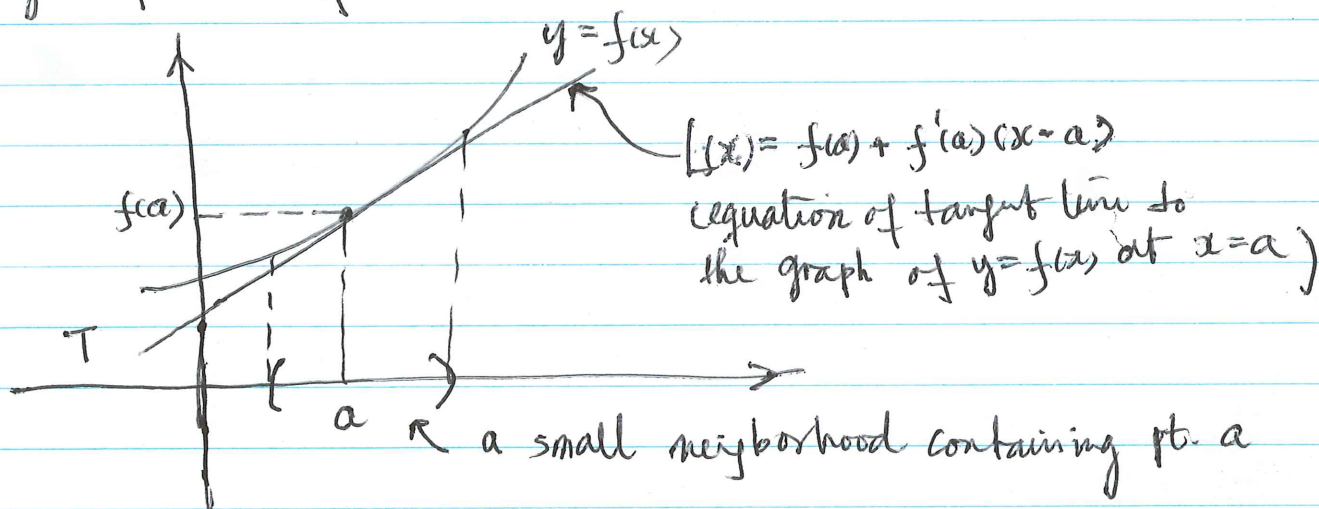 y = f(x)
L(x) = f(a) + f'(a) (x - a)
(equation of tangent line to
the graph of y = f(x) at x = a)
f(a)
T
a
a small neigborhood containing pt. a